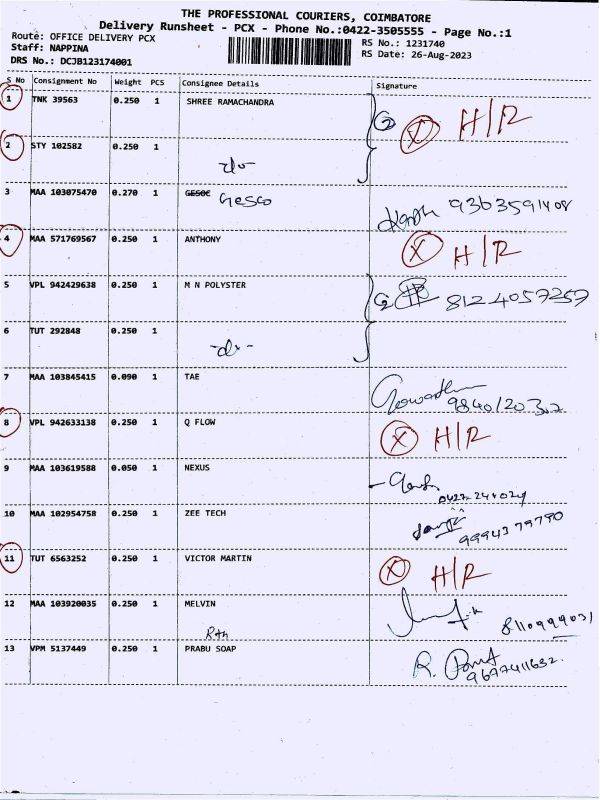 THE PROFESSIONAL COURIERS, COIMBATORE
Delivery Runsheet - PCX - Phone No.:0422-3505555 - Page No.:1
Route: OFFICE DELIVERY PCX
Staff: NAPPINA
DRS No.: DCJB123174001
RS No.: 1231740
RS Date: 26-Aug-2023
S No Consignment No Weight PCS Consignee Details Signature
1 TNK 39563 0.250 1 SHREE RAMACHANDRA 2 X H/R
2 STY 102582 0.250 1
-do-
3 MAA 103075470 0.270 1 GESOC Gesco 9363591408
4 MAA 571769567 0.250 1 ANTHONY X H/R
5 VPL 942429638 0.250 1 M N POLYSTER 2 8124057257
6 TUT 292848 0.250 1
-do-
7 MAA 103845415 0.090 1 TAE
9840120302
8 VPL 942633138 0.250 1 Q FLOW X H/R
9 MAA 103619588 0.050 1 NEXUS
10 MAA 102954758 0.250 1 ZEE TECH
9994379790
11 TUT 6563252 0.250 1 VICTOR MARTIN X H/R
12 MAA 103920035 0.250 1 MELVIN
8110999031
13 VPM 5137449 0.250 1 PRABU SOAP R.
9677411632.